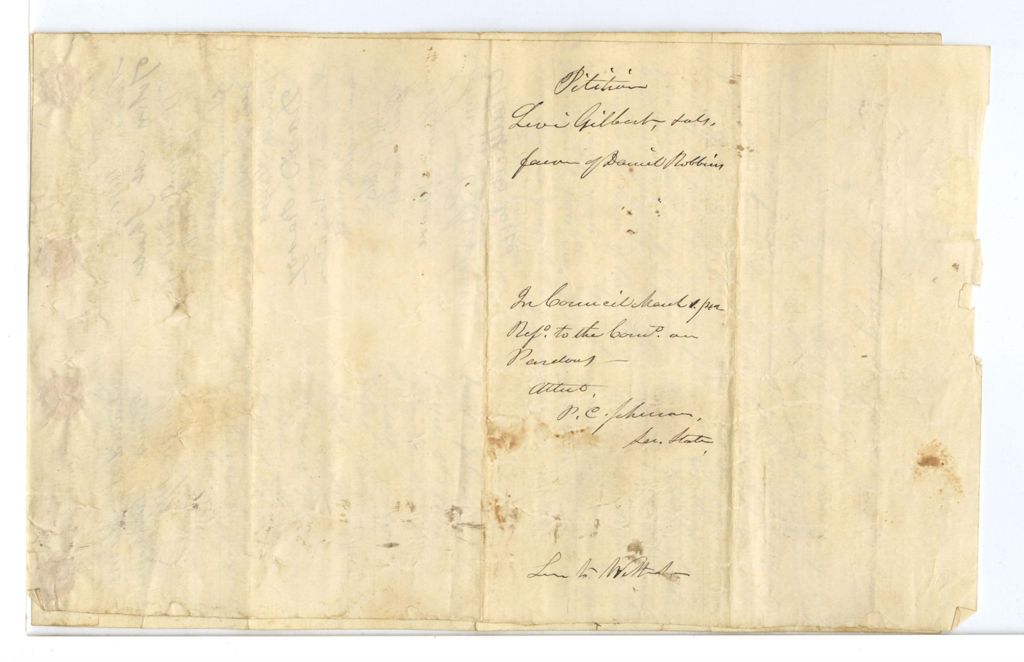 Petition
Levi Gilbert, & als.
favor of Daniel Robbins
In Council March 1. 1842
Refd. to the Comee. on
Pardons —
Attest,
P. C. Johnson,
Sec. State,
Leave to Withdraw